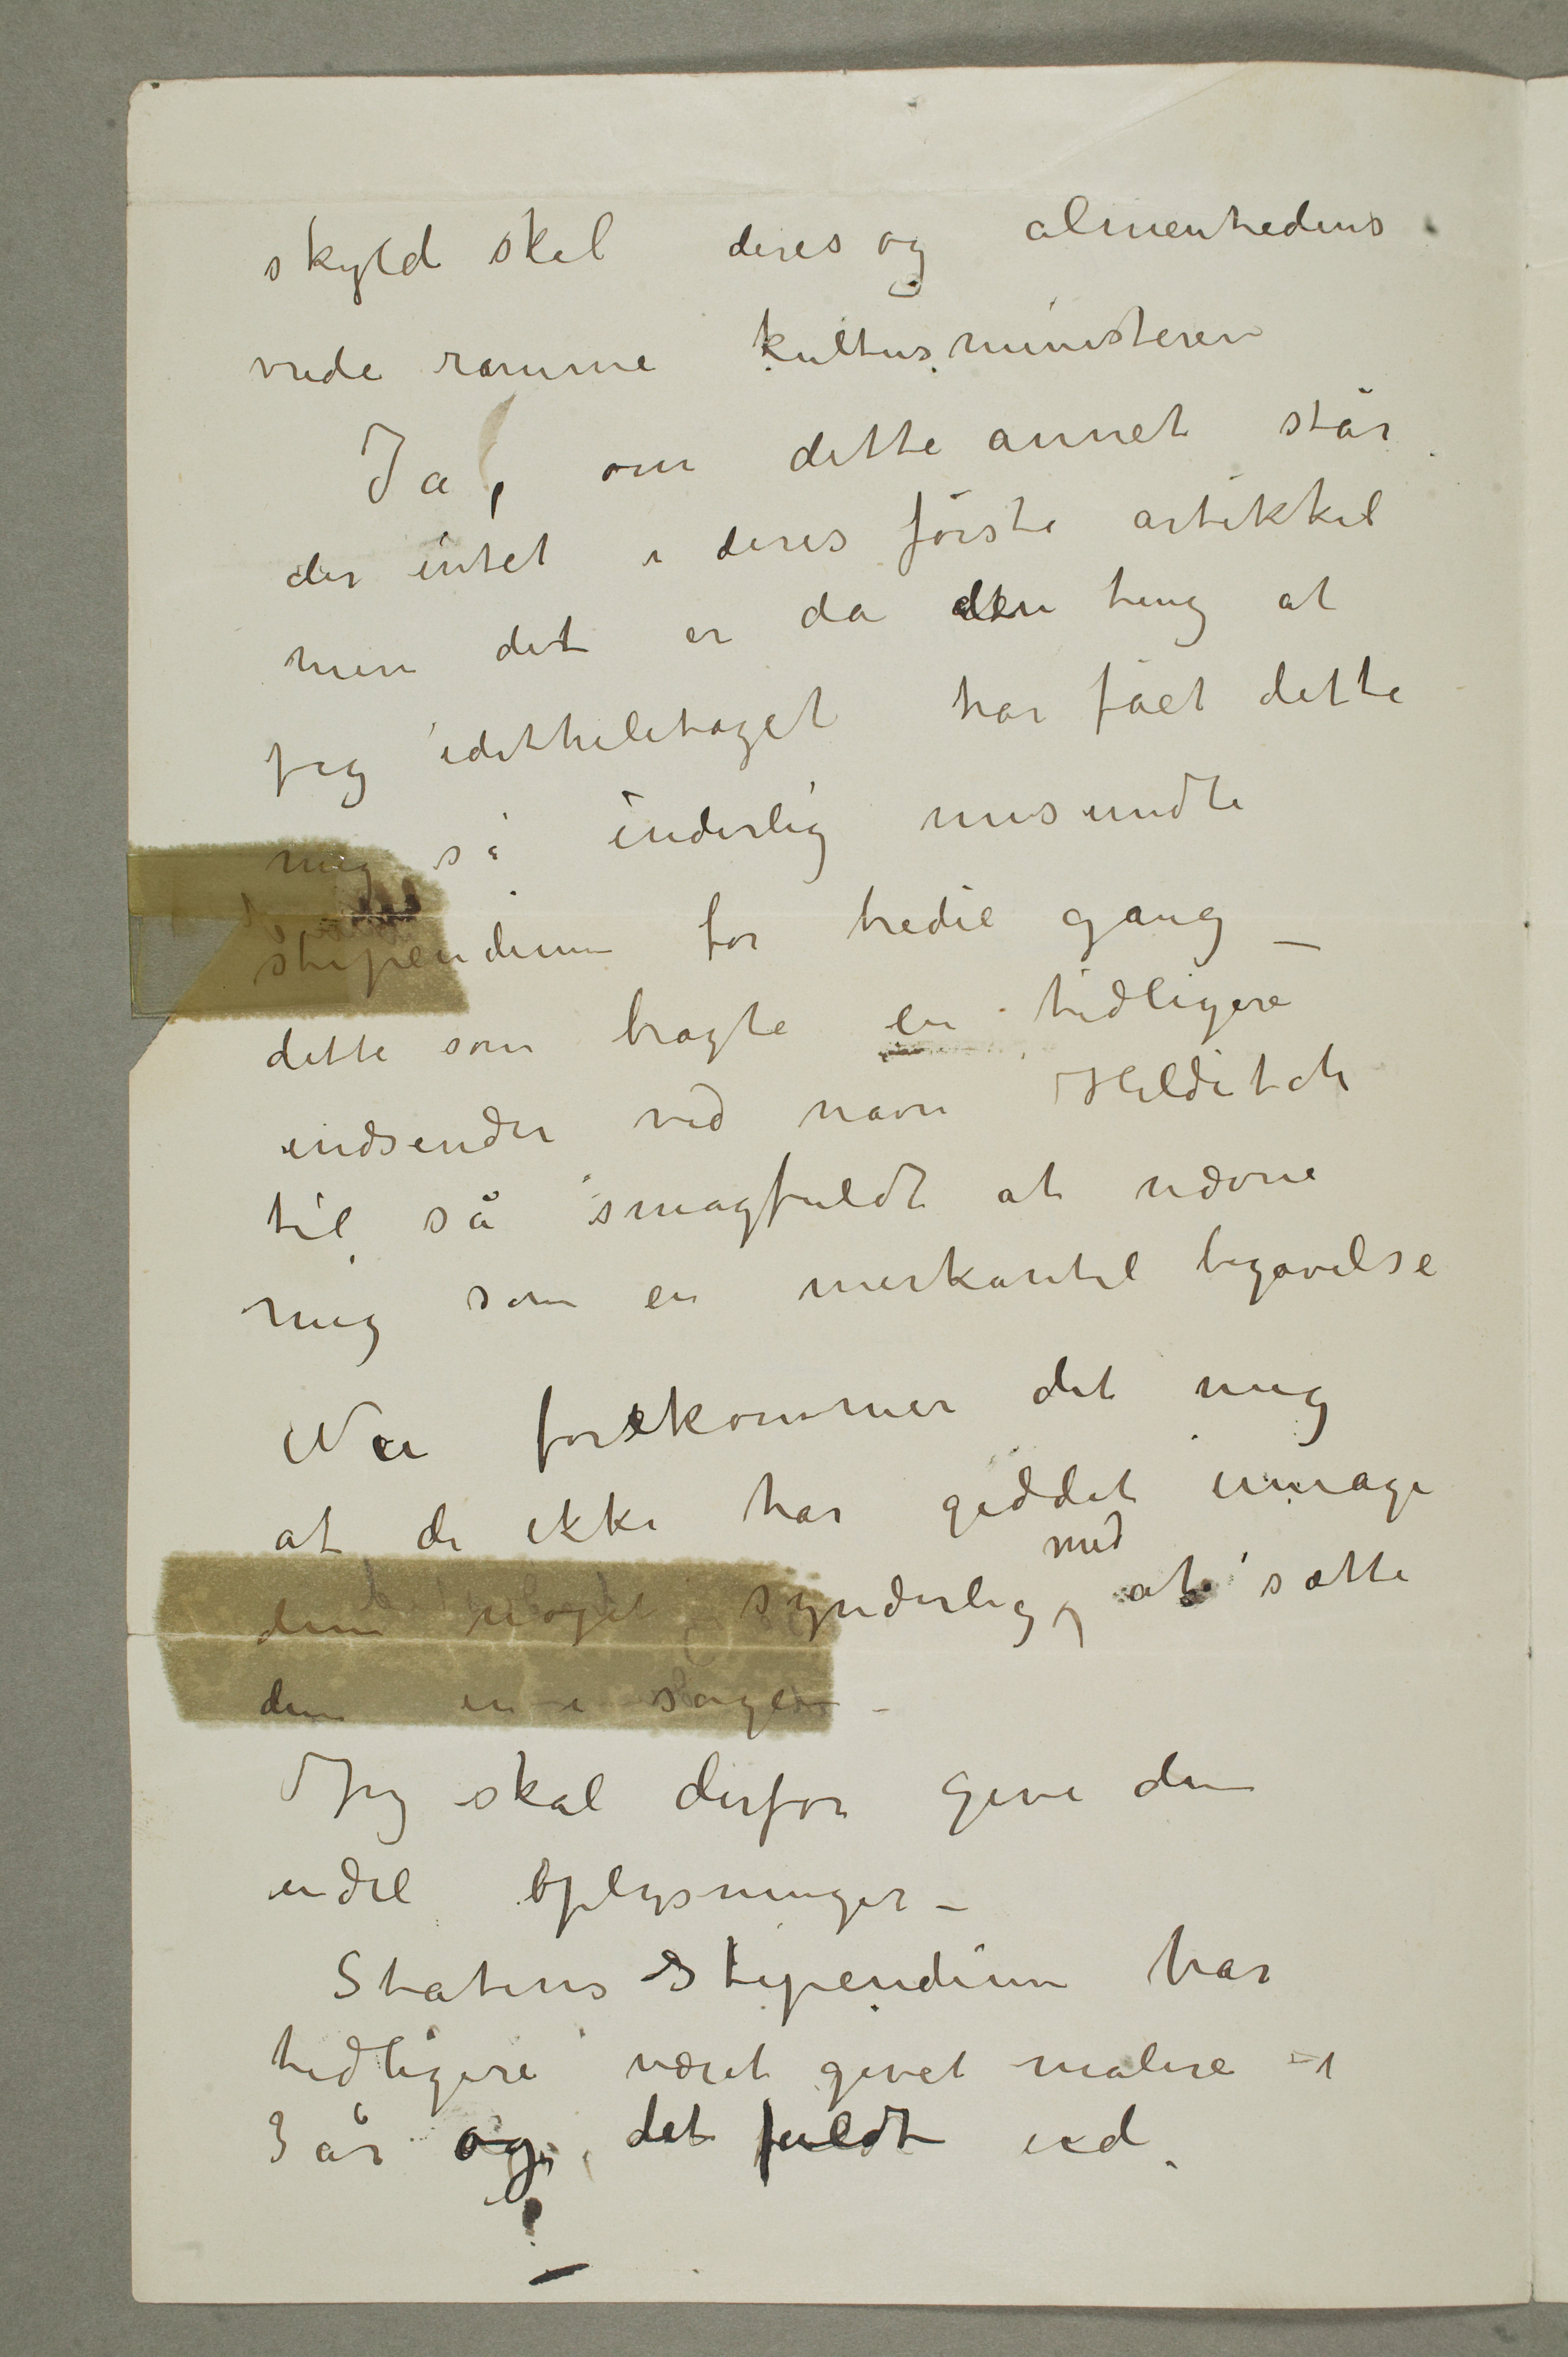 skyld skal deres og almenhedens
vrede ramme kultusministeren
Ja, om dette annet står
der intet i deres første artikkel
men det er da den ting at
jeg idetheletaget har fået dette
mig så inderlig misundte
stipendium for tredie gang –
dette som bragte en tidligere
indsender ved navn Hilditch
til så smagfuldt at nævne
mig som en merkantil begavelse
Nu forekommer det mig
at de ikke har giddet umage
dem noget synderlig med at sætte
dem in i sagen –
Jeg skal derfor give dem
endel oplysninger –
Statens Stipendium har
tidligere været givet malere i
3 år og det fuldt ud.